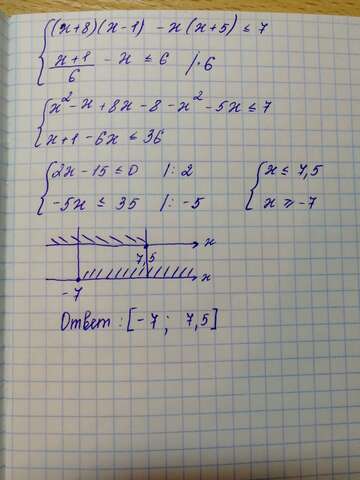 {(x+8)(x-1) - x(x+5) ≤ 7
{(x+1)/6 - x ≤ 6 /·6
{x² - x + 8x - 8 - x² - 5x ≤ 7
{x + 1 - 6x ≤ 36
{2x - 15 ≤ 0 /: 2 {x ≤ 7,5
{-5x ≤ 35 /: -5 {x ≥ -7
x
7,5
x
-7
Ответ: [-7; 7,5]